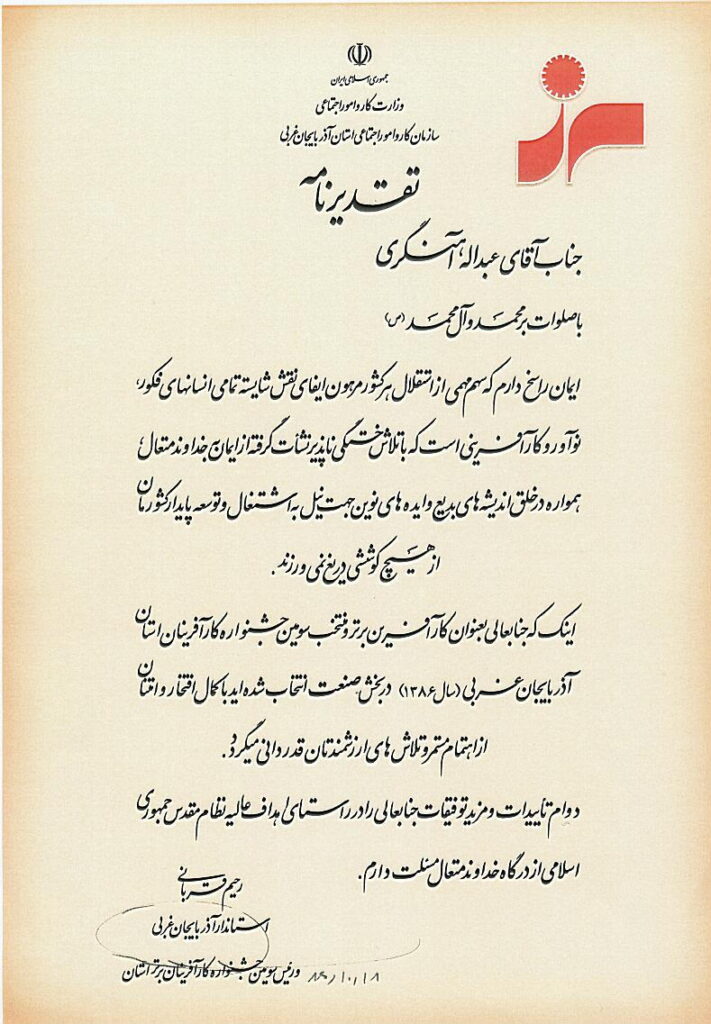 جمهوری اسلامی ایران
وزارت کار و امور اجتماعی
سازمان کار و امور اجتماعی استان آذربایجان غربی
تقدیرنامه
جناب آقای عبداله آهنگری
با صلوات بر محمد و آل محمد (ص)
ایمان راسخ دارم که سهم مهمی از استقلال هر کشور مرهون ایفای نقش شایسته تمامی انسانهای فکور،
نوآور و کارآفرینی است که با تلاش خستگی ناپذیر نشأت گرفته از ایمان به خداوند متعال،
همواره در خلق اندیشه های بدیع و ایده های نوین جهت نیل به اشتغال و توسعه پایدار کشورمان
از هیچ کوششی دریغ نمی ورزند.
اینک که جنابعالی بعنوان کارآفرین برتر و منتخب سومین جشنواره کارآفرینان استان
آذربایجان غربی (سال ۱۳۸۶) در بخش صنعت انتخاب شده اید با کمال افتخار و امتنان
از اهتمام مستمر و تلاش های ارزشمندتان قدردانی میگردد.
دوام تاییدات و مزید توفیقات جنابعالی را در راستای اهداف عالیه نظام مقدس جمهوری
اسلامی از درگاه خداوند متعال مسئلت دارم.
رحیم قربانی
استاندار آذربایجان غربی
و رئیس سومین جشنواره کارآفرینان برتر استان